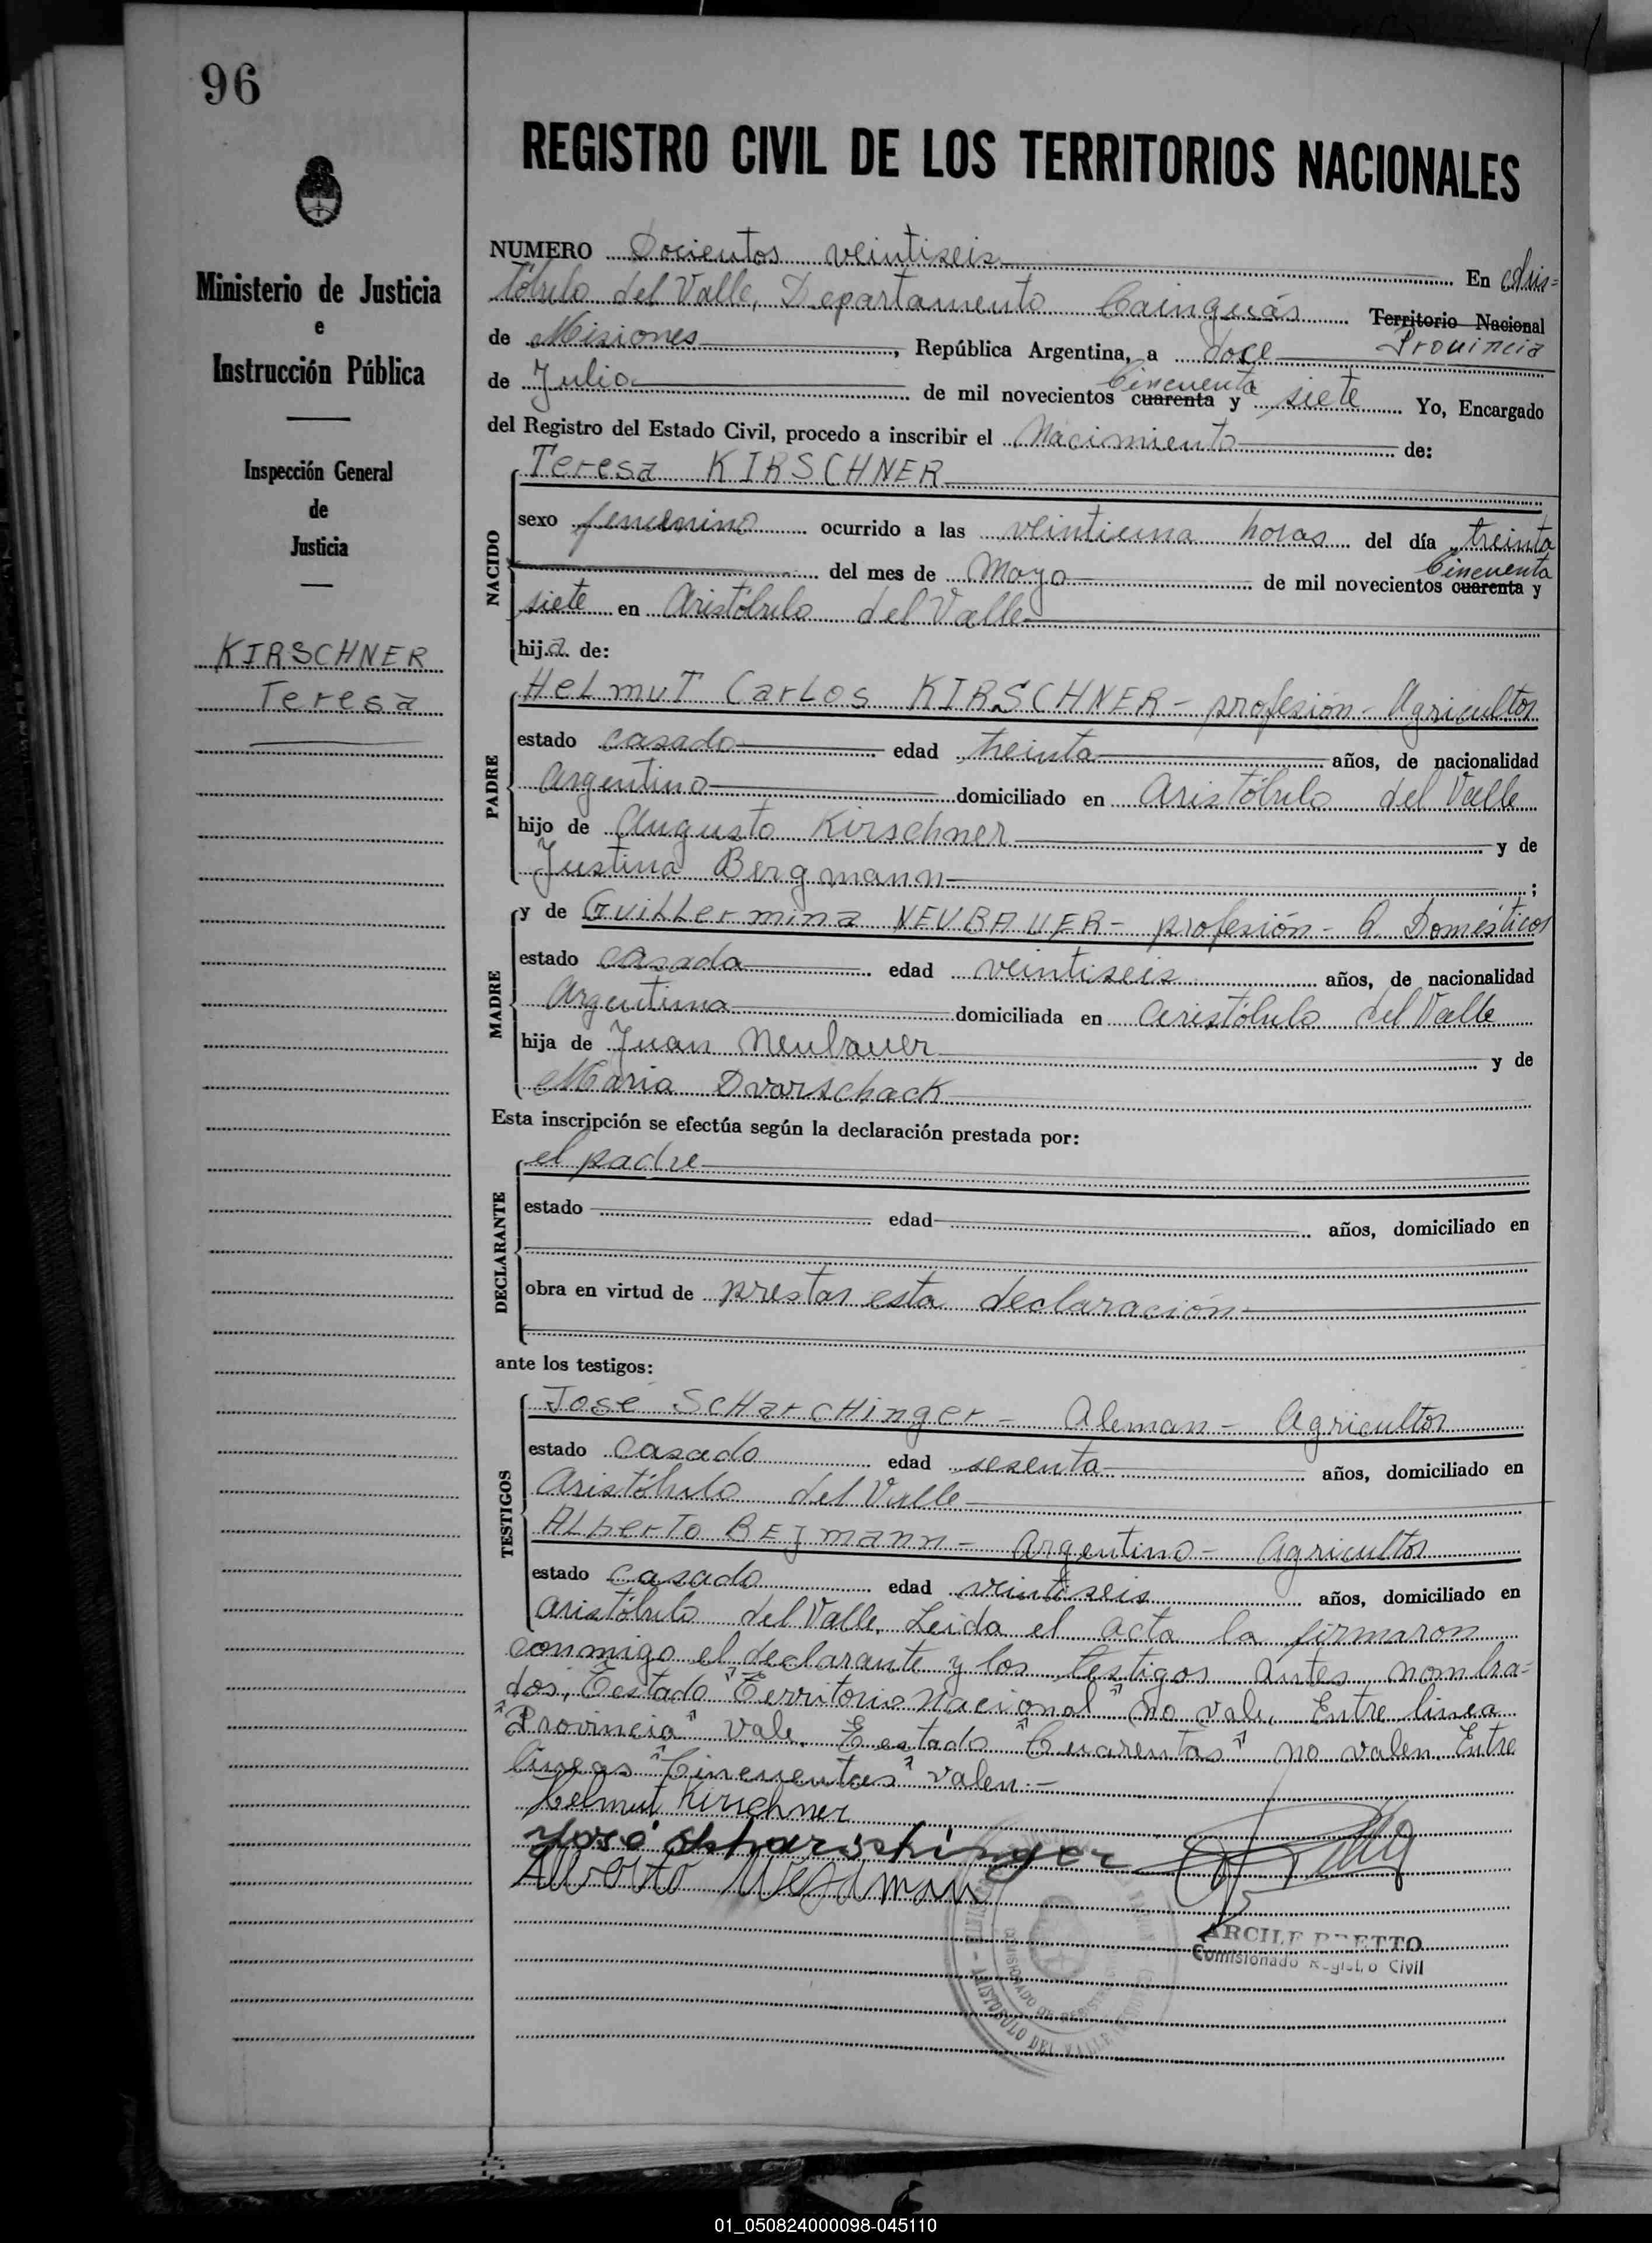 96
REGISTRO CIVIL DE LOS TERRITORIOS NACIONALES
Ministerio de Justicia
e
Instrucción Pública
Inspección General
de
Justicia
KIRSCHNER
Teresa
NUMERO Docientos veintiseis En Aris=
tóbulo del Valle, Departamento Cainguás Territorio Nacional
Provincia
de Misiones, República Argentina, a doce
de Julio de mil novecientos cuarenta y siete Yo, Encargado
Cincuenta
del Registro del Estado Civil, procedo a inscribir el Nacimiento de:
NACIDO
Teresa KIRSCHNER
sexo femenino ocurrido a las veintiuna horas del día treinta
del mes de Mayo de mil novecientos cuarenta y
Cincuenta
siete en Aristóbulo del Valle
hija de:
PADRE
Helmut Carlos KIRSCHNER - profesión - Agricultor
estado casado edad treinta años, de nacionalidad
Argentino domiciliado en Aristóbulo del Valle
hijo de Augusto Kirschner y de
Justina Bergmann ;
MADRE
y de Guillermina NEUBAUER - profesión - Q. Domésticos
estado casada edad veintiseis años, de nacionalidad
Argentina domiciliada en Aristóbulo del Valle
hija de Juan Neubauer y de
Maria Dvorschack
Esta inscripción se efectúa según la declaración prestada por:
DECLARANTE
el padre
estado edad años, domiciliado en
obra en virtud de prestar esta declaración
ante los testigos:
TESTIGOS
José Scharchinger - Aleman - Agricultor
estado Casado edad sesenta años, domiciliado en
Aristóbulo del Valle
Alberto Bejmann - Argentino - Agricultor
estado Casado edad veintiseis años, domiciliado en
Aristóbulo del Valle. Leida el acta la firmaron
conmigo el declarante y los testigos antes nombra=
dos. Testado "Territorio Nacional" no vale. Entre linea
"Provincia" vale. Testado "Cuarentas" no valen. Entre
lineas "Cincuentas" valen.-
Helmut Kirschner
José Scharschinger
Alberto
ARCILE
Comisionado Registro Civil
ARISTOBULO DEL VALLE
COMISIONADO DE REGISTRO
01_050824000098-045110